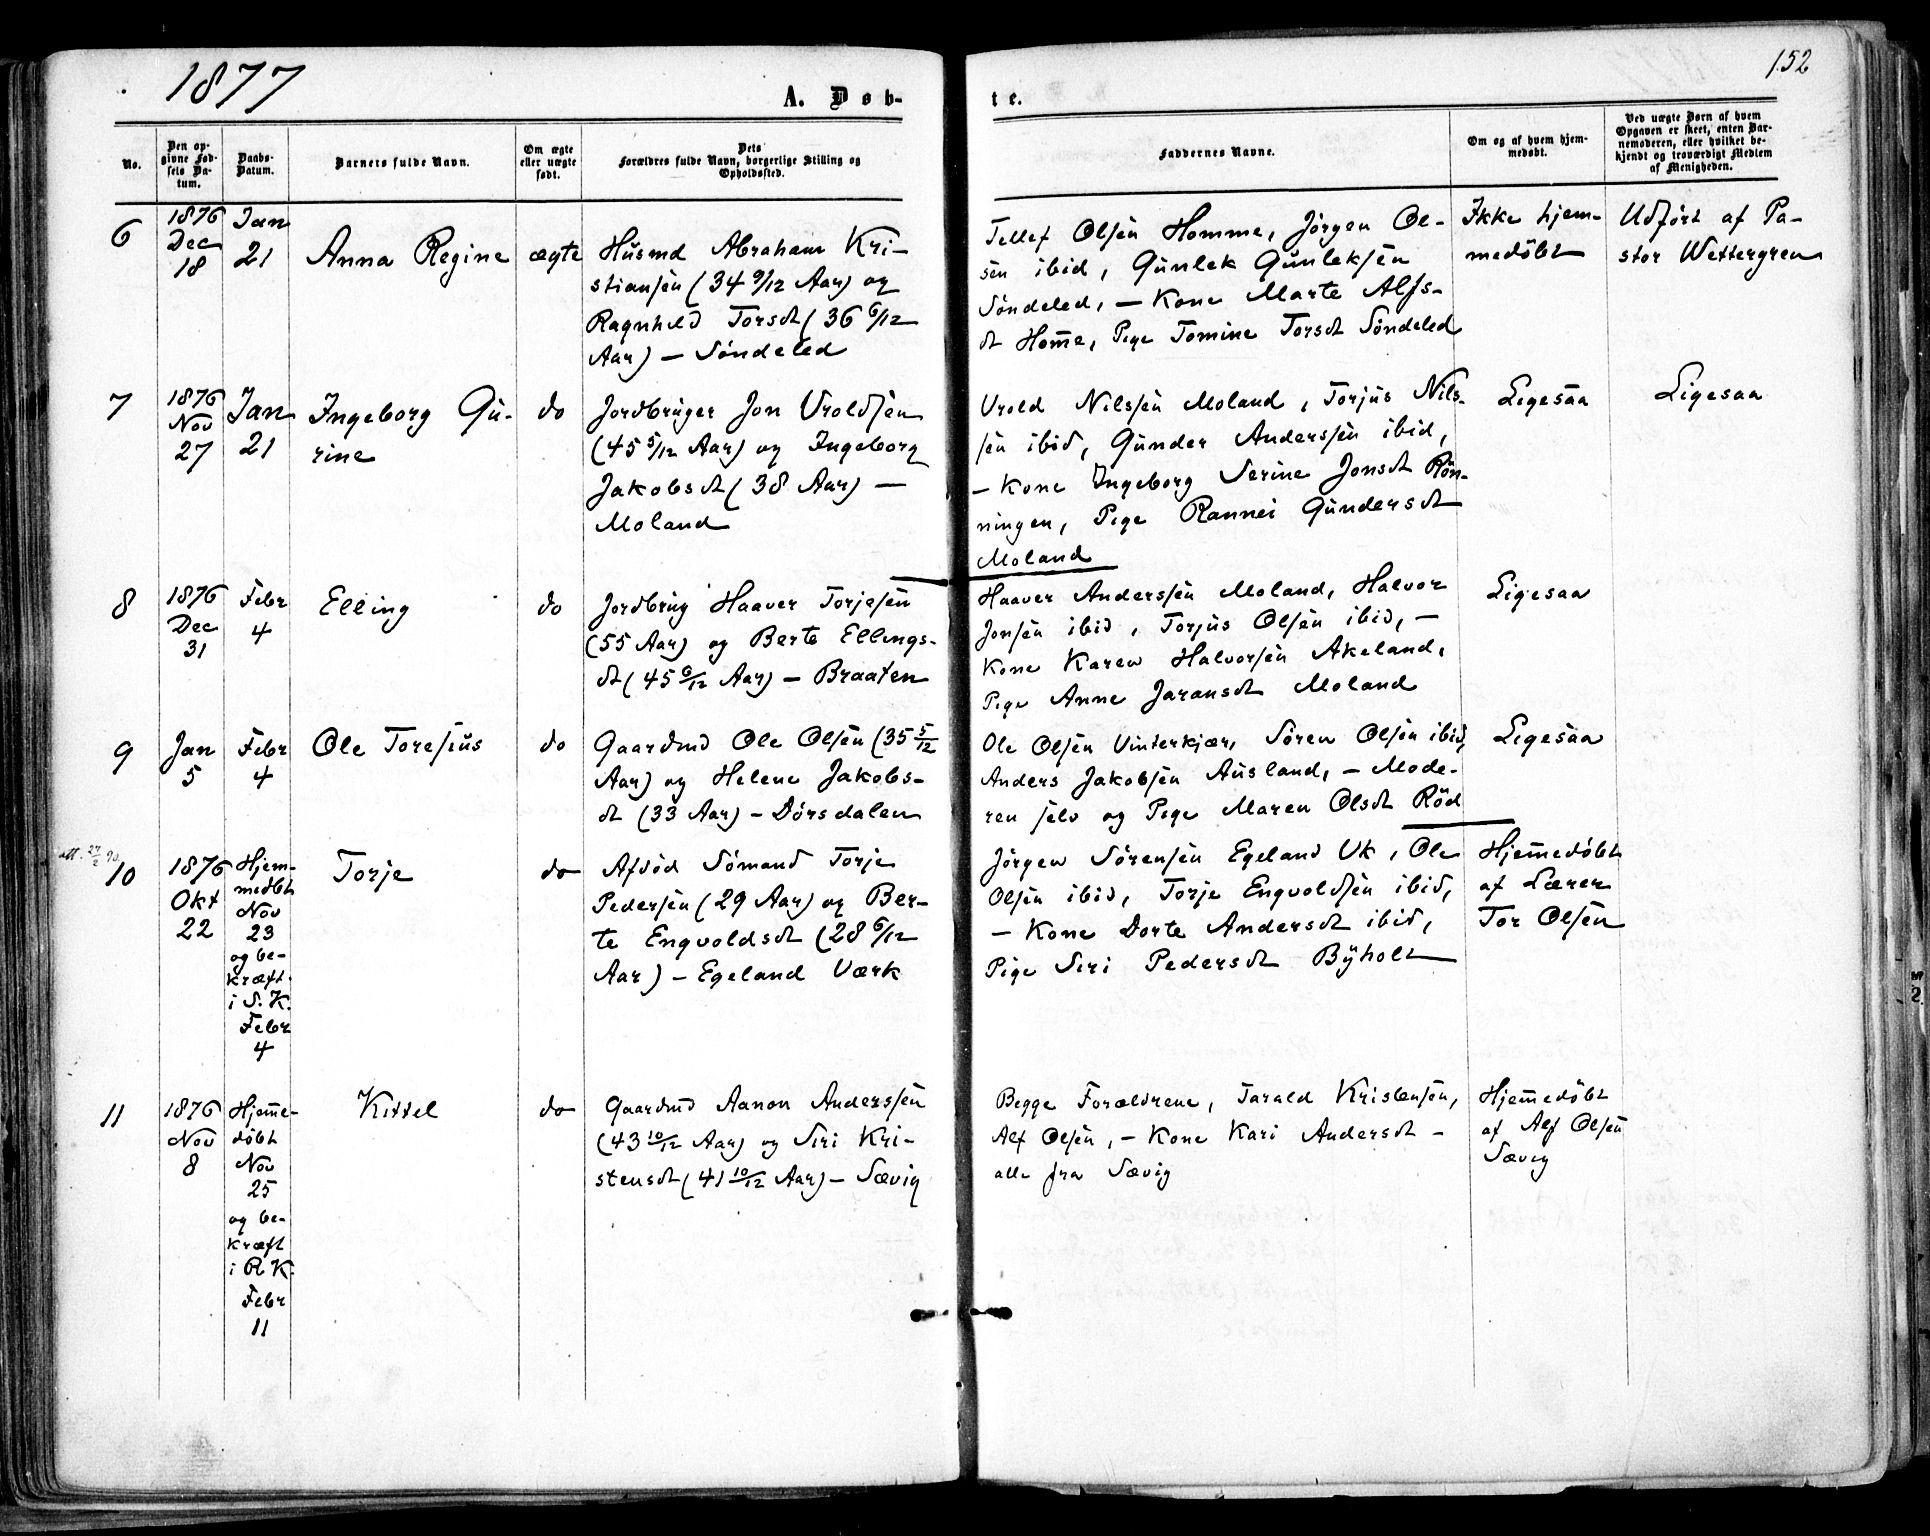 1877
152
A. Døb-
te.
No.
Den op-
givne Fød-
sels Da-
tum.
Daabs-
Datum.
Barnets fulde Navn.
Om ægte
eller uægte
født.
Dets
Forældres fulde Navn, borgerlige Stilling og
Opholdssted.
Faddernes Navne.
Om og af hvem hjem-
medøbt.
Ved uægte Børn af hvem
Opgaven er skeet, enten Bar-
nemoderen, eller hvilket be-
kjendt og troværdigt Medlem
af Menigheden.
6
1876
Dec
18
Jan
21
Anna Regine
ægte
Husmd Abraham Kri-
stiansen (34 9/12 Aar) og
Ragnhild Torsdt (36 6/12
Aar) - Søndeled
Tellef Olsen Homme, Jörgen Ol-
sen ibid, Gunlek Gunleksen
Søndeled, - Kone Marte Alfs-
dt Home, Pige Tomine Torsdt Söndeled
Ikke hjem-
medøbt
Udført af Pa-
stor Wettergren
7
1876
Nov
27
Jan
21
Ingeborg Gu-
rine
do
Jordbruger Jon Vroldsen
(45 5/12 Aar) og Ingeborg
Jakobsdt (38 Aar) -
Moland
Vrold Nilssen Moland, Torjus Nils-
sen ibid, Gunder Anderssen ibid,
- Kone Ingeborg Serine Jonsdt Rön-
ningen, Pige Rannei Gundersdt
Moland
Ligesaa
Ligesaa
8
1876
Dec
31
Febr
4
Elling
do
Jordbrug Haaver Torjesen
(55 Aar) og Berte Ellings-
dt (45 6/12 Aar) - Braaten
Haaver Anderssen Moland, Halvor
Jonsen ibid, Torjus Olsen ibid, -
Kone Karen Halvorsen Akeland,
Pige Anne Jaransdt Moland
Ligesaa
9
Jan
5
Febr
4
Ole Toresius
do
Gaardmd Ole Olsen (35 5/12
Aar) og Helene Jakobs-
dt (33 Aar) - Dörsdalen
Ole Olsen Vinterkjær, Sören Olsen ibid,
Anders Jakobsen Ausland, - Mode-
ren selv og Pige Maren Olsdt Röd
Ligesaa
att. 27/2 90.
10
1876
Okt
22
Hjem-
medbt
Nov
23
og be-
kræft.
i S. K.
Febr
4
Torje
do
Afdöd Sömand Torje
Pedersen (29 Aar) og Ber-
te Engvoldsdt (28 6/12
Aar) - Egeland Værk
Jörgen Sörensen Egeland Vk, Ole
Olsen ibid, Torje Engvoldsen ibid,
- Kone Dorte Andersdt ibid,
Pige Siri Pedersdt Byholt
Hjemedöbt
af Lærer
Tor Olsen
11
1876
Nov
8
Hjeme-
döbt
Nov
25
og be-
kræft
i R K.
Febr
11
Kittel
do
Gaardmd Aanon Anderssen
(43 10/12 Aar) og Siri Kri-
stensdt (41 10/12 Aar) - Sævig
Begge Forældrene, Tarald Kristensen,
Alf Olsen, - Kone Kari Andersdt -
alle fra Sævig
Hjemedöbt
af Alf Olsen
Sævig